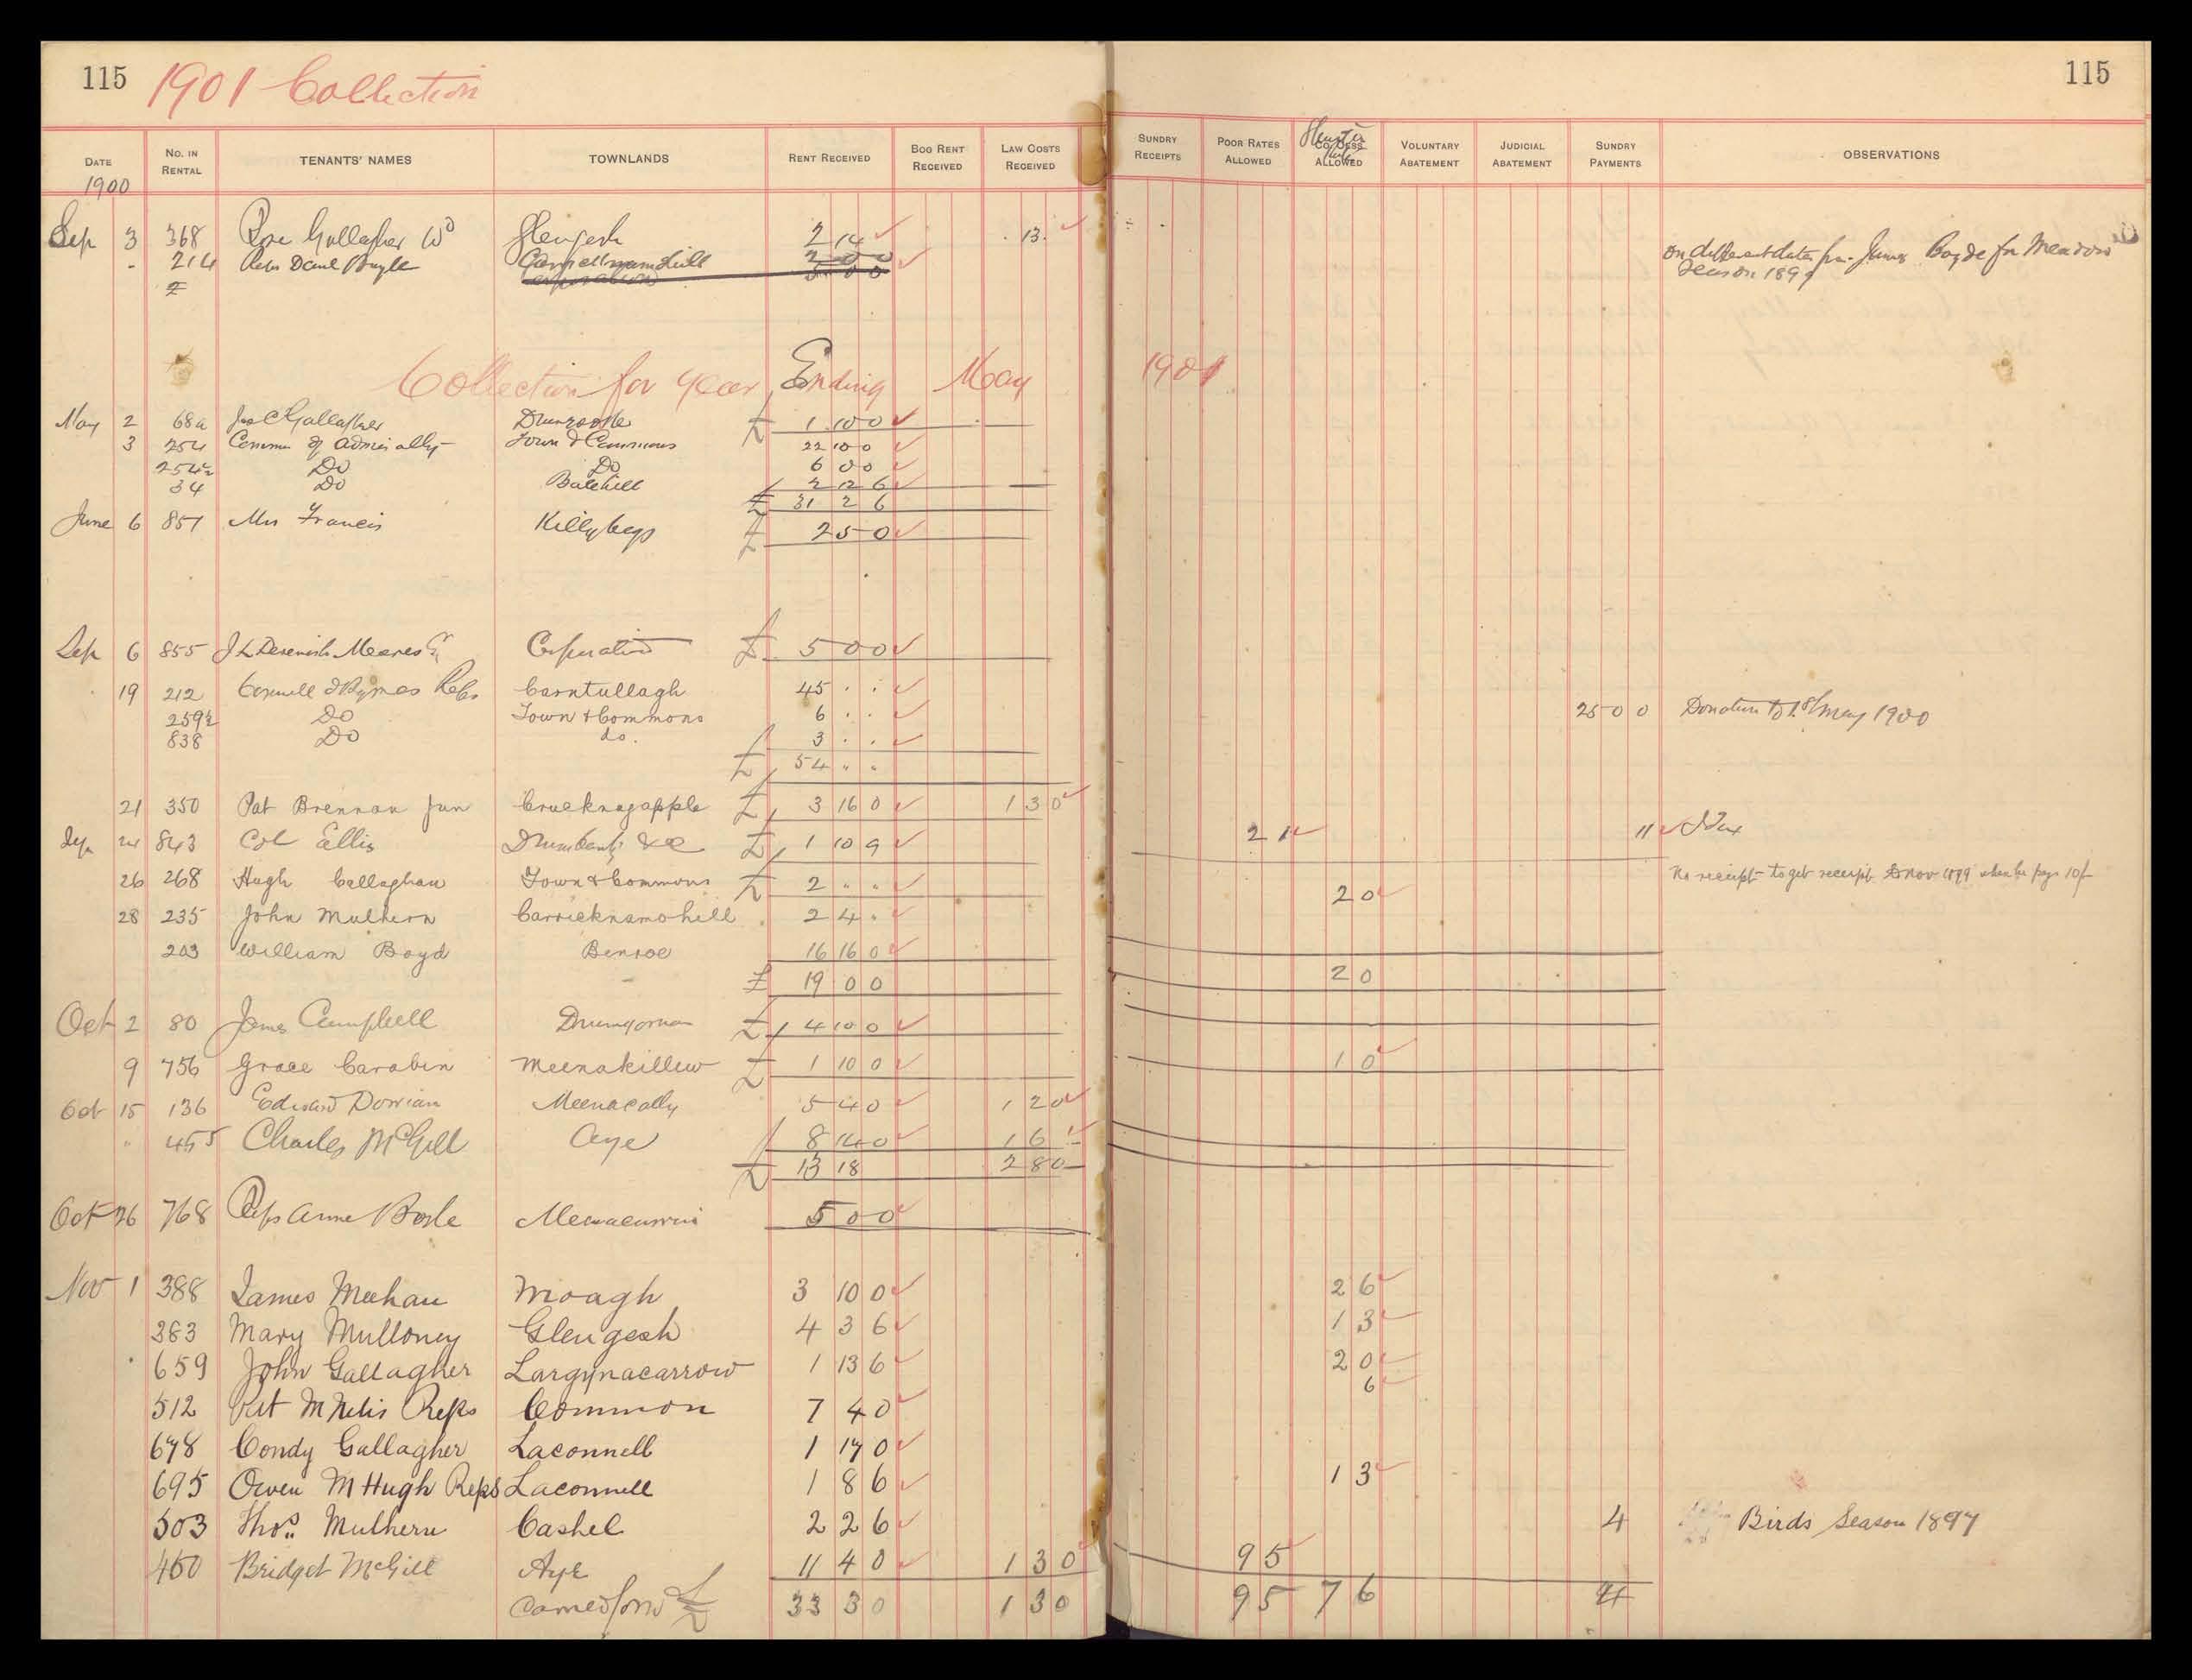 115 1901 Collection 115
DATE NO. IN RENTAL TENANTS' NAMES TOWNLANDS RENT RECEIVED BOG RENT RECEIVED LAW COSTS RECEIVED SUNDRY RECEIPTS POOR RATES ALLOWED ALLOWED VOLUNTARY ABATEMENT JUDICIAL ABATEMENT SUNDRY PAYMENTS OBSERVATIONS
1900
Sep 3 368 Rose Gallagher Wd Glengesh 2 14 13
214 Reps Danl Boyle 2 0 0 on different dates James Boyde for Meadow
5 0 0 Season 1899
Collection for year Ending May 1901
May 2 68a Jas Gallagher Drumroske £ 1 10 0
3 254 Commr of Admiralty Town & Commons 22 10 0
254½ Do Do 6 0 0
34 Do Balehill 2 12 6
£ 31 2 6
June 6 857 Mrs Francis Killybegs £ 2 5 0
Sep 6 855 J L Devenish Meares Esq Corporation £ 5 0 0
19 212 Connell & Byrnes Reps Carntullagh 45 . .
259½ Do Town & Commons 6 . . 25 0 0 Donation to 1st May 1900
838 Do do. 3 . .
£ 54 " "
21 350 Pat Brennan Jun Crucknagapple £ 3 16 0 1 3 0
Sep 24 843 Col Ellis Drumbeauty &c £ 1 10 9 2 1 11 I Tax
26 268 Hugh Callaghan Town & Commons £ 2 " " 2 0 No receipt to get receipt to Nov 1899 when he pays 10/-
28 235 John Mulhern Carricknamohill 2 4 "
203 William Boyd Benroe 16 16 0
£ 19 0 0 2 0
Oct 2 80 James Campbell Drumgorman £ 4 10 0
9 756 Grace Carabin Meenakillew £ 1 10 0 1 0
Oct 15 136 Edward Dorrian Meenacally 5 4 0 1 2 0
" 455 Charles McGill Aye 8 14 0 1 6 -
£ 13 18 2 8 0
Oct 26 768 Reps Anne Boyle 5 0 0
Nov 1 388 James Meehan Moagh 3 10 0 2 6
383 Mary Mulloney Glengesh 4 3 6 1 3
659 John Gallagher Largynacarrow 1 13 6 2 0
512 Pat McNelis Reps Common 7 4 0 6
678 Condy Gallagher Laconnell 1 17 0
695 Owen McHugh Reps Laconnell 1 8 6 1 3
503 Thos. Mulhern Cashel 2 2 6 4 Birds Season 1897
460 Bridget McGill Aye 11 4 0 1 3 0 9 5
Carried forwd £ 33 3 0 1 3 0 9 5 7 6 4